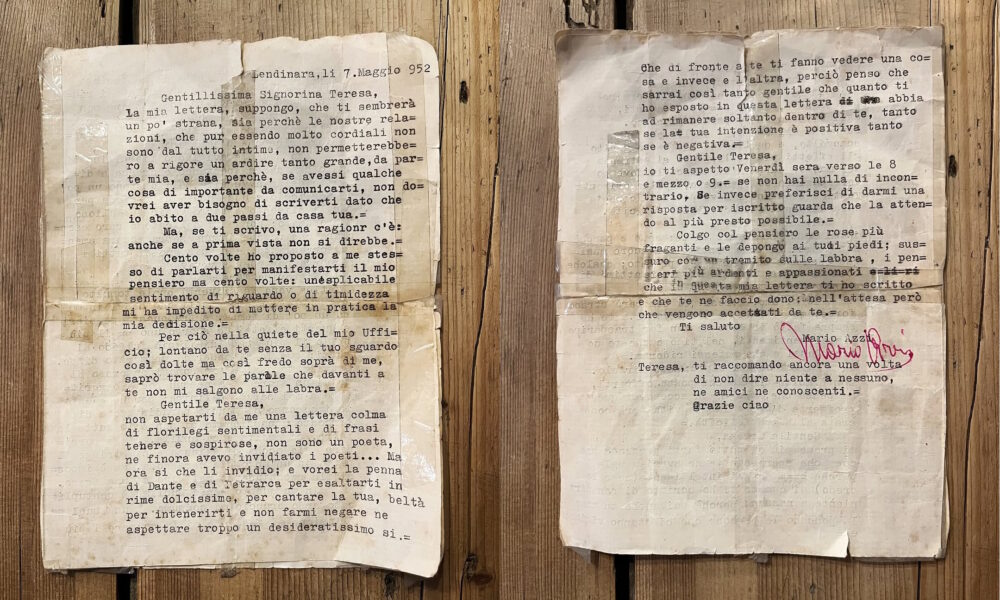 Lendinara,li 7.Maggio 952
Gentillissima Signorina Teresa,
La mia lettera, suppongo, che ti sembrerà
un po' strana, sia perchè le nostre rela=
zioni, che pur essendo molto cordiali non
sono dal tutto intime, non permetterebbe=
ro a rigore un ardire tanto grande,da par=
te mia, e sia perchè, se avessi qualche
cosa di importante da comunicarti, non do=
vrei aver bisogno di scriverti dato che
io abito a due passi da casa tua.=
Ma, se ti scrivo, una ragionr c'è:
anche se a prima vista non si direbbe.=
Cento volte ho proposto a me stes=
so di parlarti per manifestarti il mio
pensiero ma cento volte: unesplicabile
sentimento di riguardo o di timidezza
mi ha impedito di mettere in pratica la
mia decisione.=
Per ciò nella quiete del mio Uffi=
cio; lontano da te senza il tuo sguardo
così dolte ma così fredo soprà di me,
saprò trovare le parole che davanti a
te non mi salgono alle labra.=
Gentile Teresa,
non aspetarti da me una lettera colma
di florilegi sentimentali e di frasi
tehere e sospirose, non sono un poeta,
ne finora avevo invidiato i poeti... Ma
ora si che li invidio; e vorei la penna
di Dante e di Petrarca per esaltarti in
rime dolcissime, per cantare la tua, beltà
per intenerirti e non farmi negare ne
aspettare troppo un desideratissimo si.=
Che di fronte a te ti fanno vedere una co=
sa e invece e l'altra, perciò penso che
sarrai così tanto gentile che quanto ti
ho esposto in questa lettera abbia
ad rimanere soltanto dentro di te, tanto
se la tua intenzione è positiva tanto
se è negativa.=
Gentile Teresa,
io ti aspetto Venerdì sera verso le 8
e mezzo o 9.= se non hai nulla di incon=
trario, Se invece preferisci di darmi una
risposta per iscritto guarda che la atten=
do al più presto possibile.=
Colgo col pensiero le rose più
fraganti e le depongo ai tudi piedi; sus=
suro con un tremito sulle labbra , i pen=
sieri più ardenti e appassionati
che in questa mia lettera ti ho scritto
e che te ne faccio dono: nell'attesa però
che vengono accettati da te.=
Ti saluto
Mario Azzi
Teresa, ti raccomando ancora una volta
di non dire niente a nessuno,
ne amici ne conoscenti.=
Grazie ciao